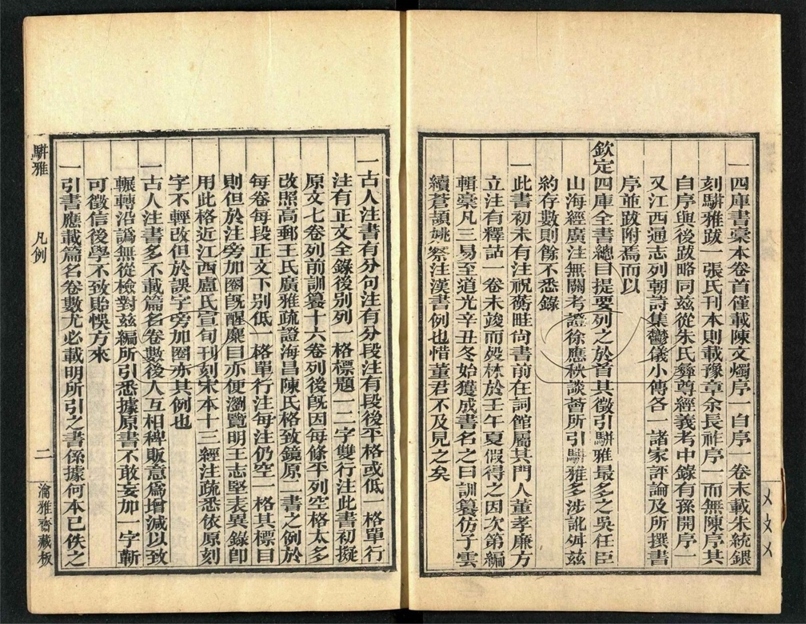 一四庫書稾本卷首僅載陳文燭序一自序一卷末載朱統鍡
刻駢雅跋一張氏刊本則載豫章余長祚序一而無陳序其
自序與後跋略同茲從朱氏彝尊經義考中錄有孫開序一
又江西通志列朝詩集鬱儀小傳各一諸家評論及所撰書
序並跋附焉而以
欽定四庫全書總目提要列之於首其徵引駢雅最多之吳任臣
山海經廣注無關考證徐應秋談薈所引駢雅多涉訛舛茲
約存數則餘不悉錄
一此書初未有注祝蘅畦尚書前在詞館屬其門人董孝廉方
立注有釋詁一卷未竣而歿林於壬午夏假得之因次第編
輯槀凡三易至道光辛丑冬始獲成書名之曰訓纂仿子雲
續蒼頡姚察注漢書例也惜董君不及見之矣
一古人注書有分句注有分段注有段後平格或低一格單行
注有正文全錄後別列一格標題一二字雙行注此書初擬
原文七卷列前訓纂十六卷列後旣因每條平列空格太多
改照高郵王氏廣雅疏證海昌陳氏格致鏡原二書之例於
每卷每段正文下別低一格單行注每注仍空一格其標目
則但於注旁加圈旣醒麋目亦便瀏覽明王志堅表異錄卽
用此格近江西盧氏宣旬刊刻宋本十三經注疏悉依原刻
字不輕改但於誤字旁加圈亦其例也
一古人注書多不載篇名卷數後人互相稗販意爲增減以致
輾轉沿譌無從檢對茲編所引悉據原書不敢妄加一字蘄
可徵信後學不致貽悞方來
一引書應載篇名卷數尤必載明所引之書係據何本已佚之
駢雅 凡例 二 瀹雅齋藏板